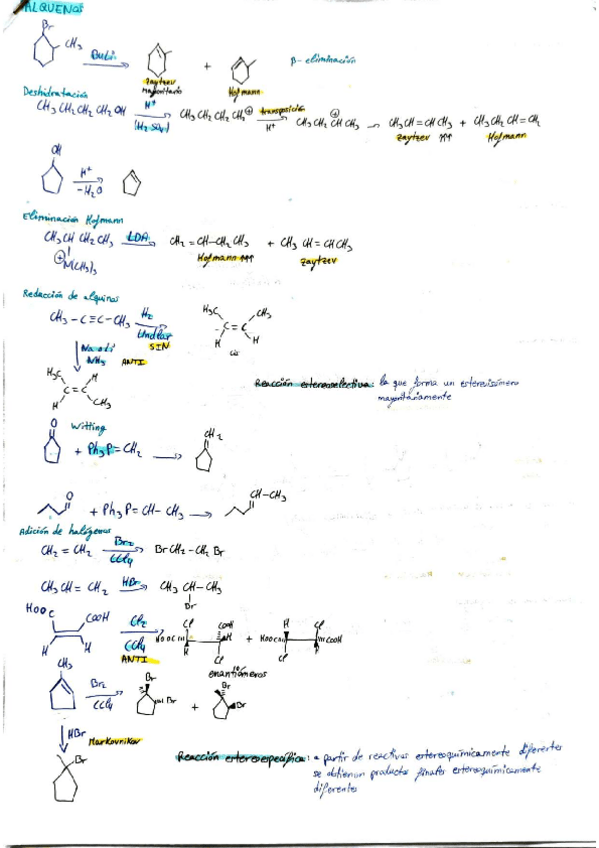 ALQUENOS
Br
CH3 BuLi + β-eliminación
Zaytzev Hofmann
mayoritario
Deshidratación
CH3CH2CH2CH2OH H+ (H2SO4) CH3CH2CH2CH2⊕ transposición H+ CH3CH2CHCH3 ⊕ → CH3CH=CHCH3 + CH3CH2CH=CH2
Zaytzev ↑↑ Hofmann
OH
H+
-H2O
Eliminación Hofmann
CH3CHCH2CH3 LDA CH2=CH-CH2CH3 + CH3CH=CHCH3
⊕N(CH3)3 Hofmann ↑↑↑ Zaytzev
Redacción de alquinos
CH3-C≡C-CH3 H2 Lindlar SIN H3C CH3
C=C
H H
cis
Na o Li
NH3 ANTI
H3C H
C=C
H CH3
Reacción estereoselectiva: la que forma un estereoisómero
mayoritariamente
Witting
O + Ph3P=CH2 → CH2
O + Ph3P=CH-CH3 → CH-CH3
Adición de halógenos
CH2=CH2 Br2 CCl4 BrCH2-CH2Br
CH3CH=CH2 HBr CH3CH-CH3
Br
HOOC COOH
H H
Cl2
CCl4
ANTI
Cl COOH H Cl
HOOC H + HOOC COOH
H Cl Cl
enantiómeros
CH3 Br2 CCl4 Br Br + Br Br
HBr Markovnikov
Br
Reacción estereoespecífica: a partir de reactivos estereoquímicamente diferentes
se obtienen productos finales estereoquímicamente
diferentes